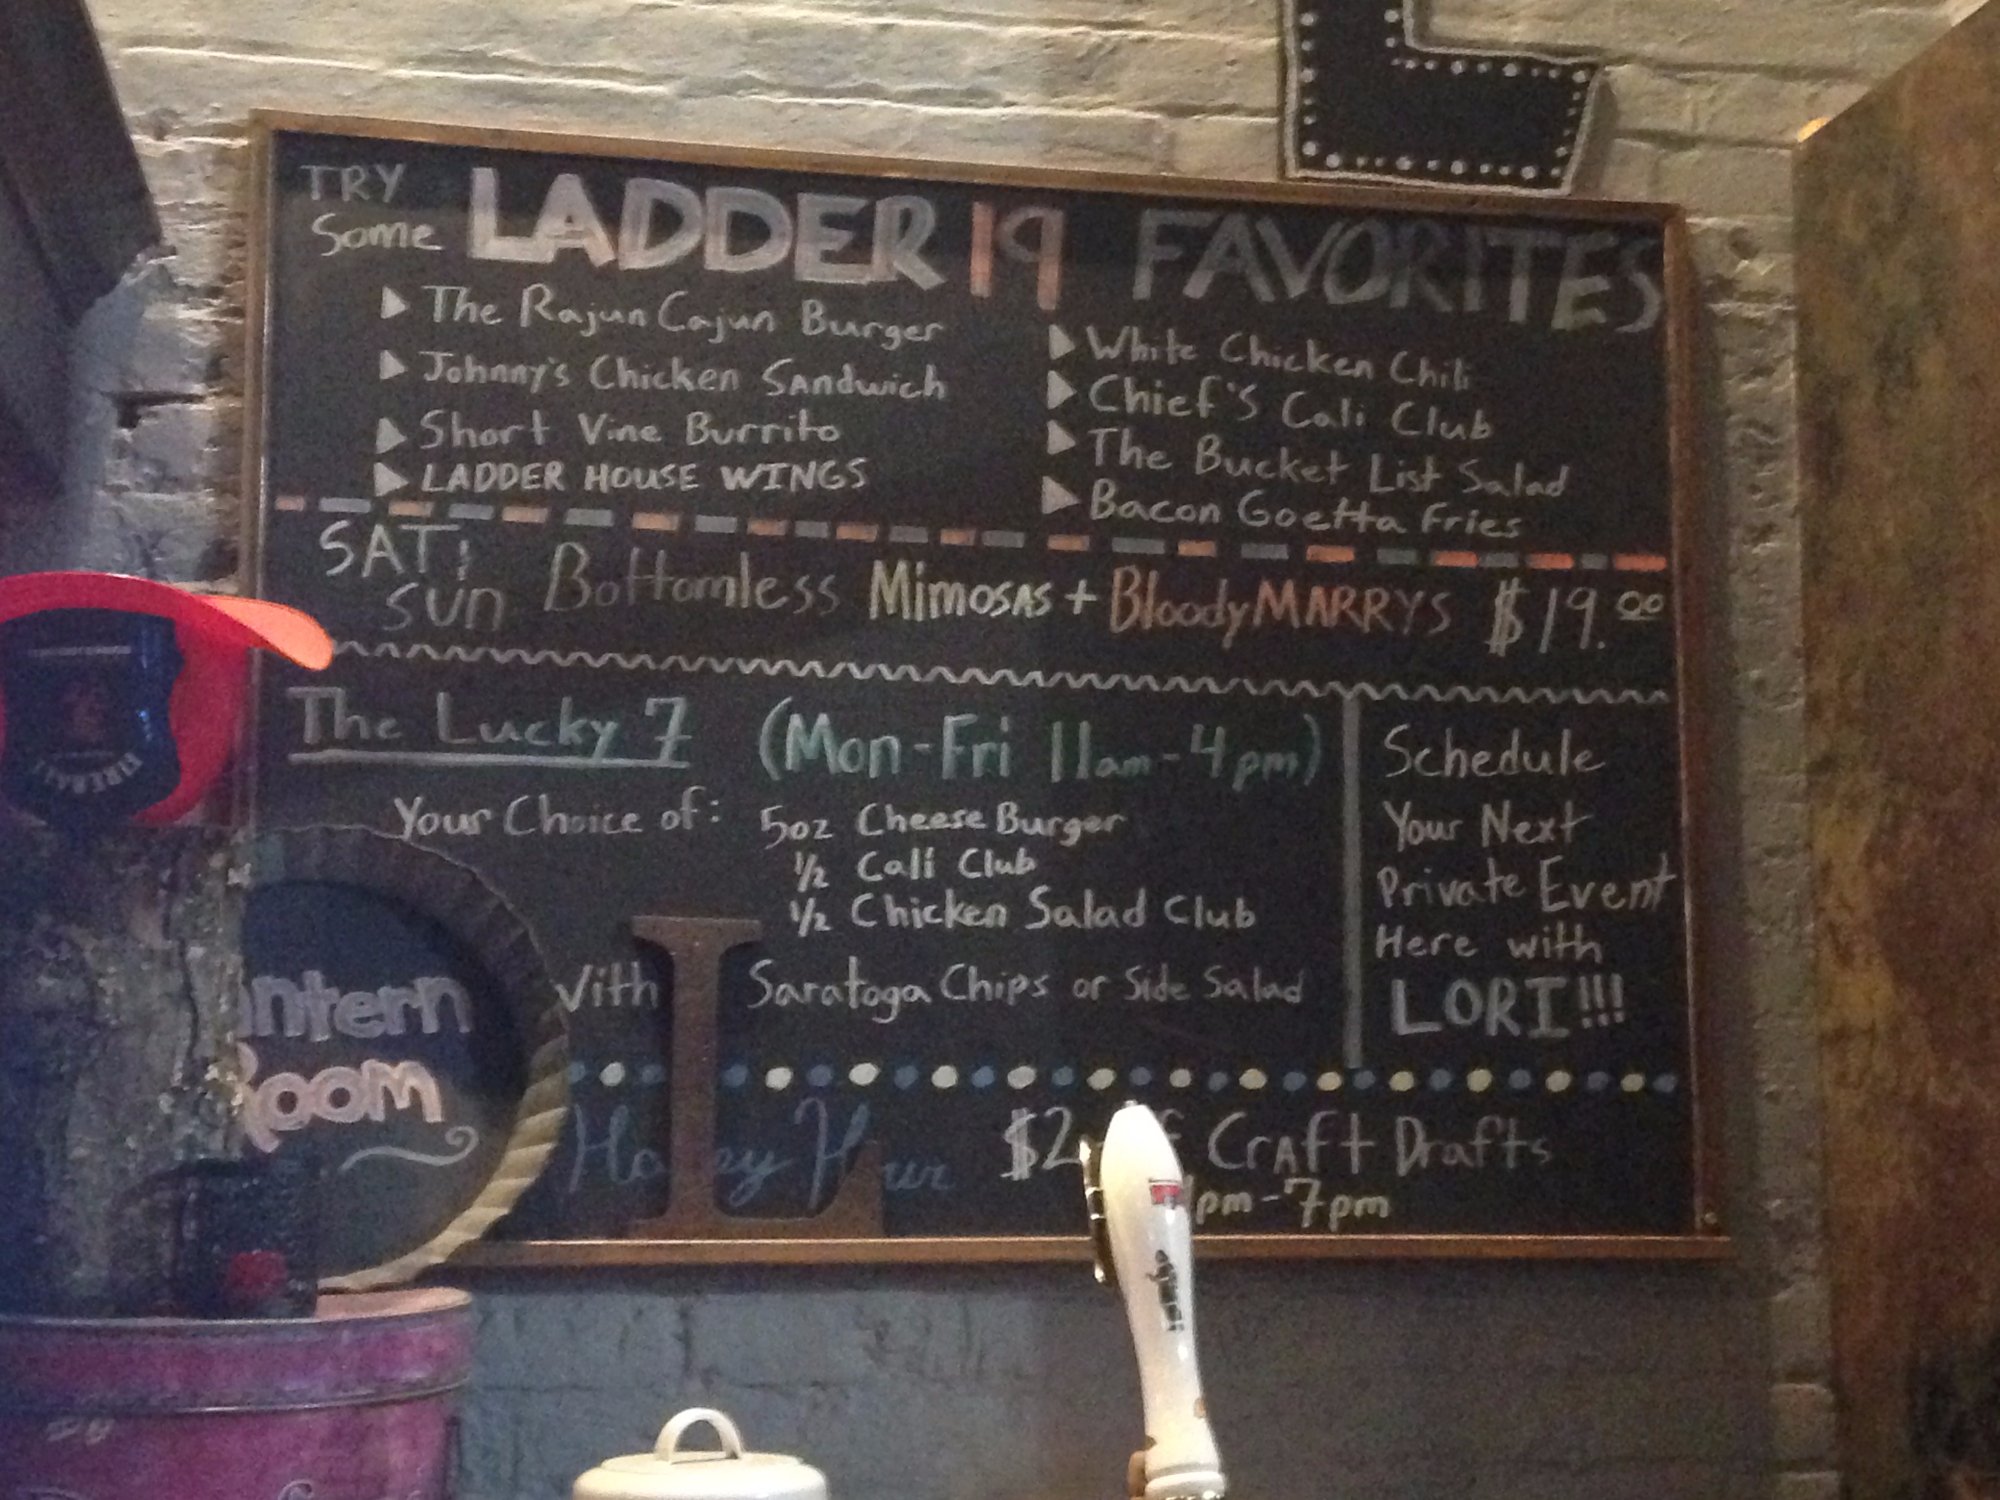 TRY
Some LADDER 19 FAVORITES
The Rajun Cajun Burger
Johnny's Chicken Sandwich
Short Vine Burrito
LADDER HOUSE WINGS
White Chicken Chili
Chief's Cali Club
The Bucket List Salad
Bacon Goetta Fries
SAT;
SUN Bottomless Mimosas + Bloody MARRYS $19.00
The Lucky 7 (Mon-Fri 11am-4pm)
Your Choice of: 5oz Cheese Burger
1/2 Cali Club
1/2 Chicken Salad Club
With Saratoga Chips or Side Salad
Schedule
Your Next
Private Event
Here with
LORI!!!
$2 Craft Drafts
pm-7pm
antern
Room
FIREBALL
L